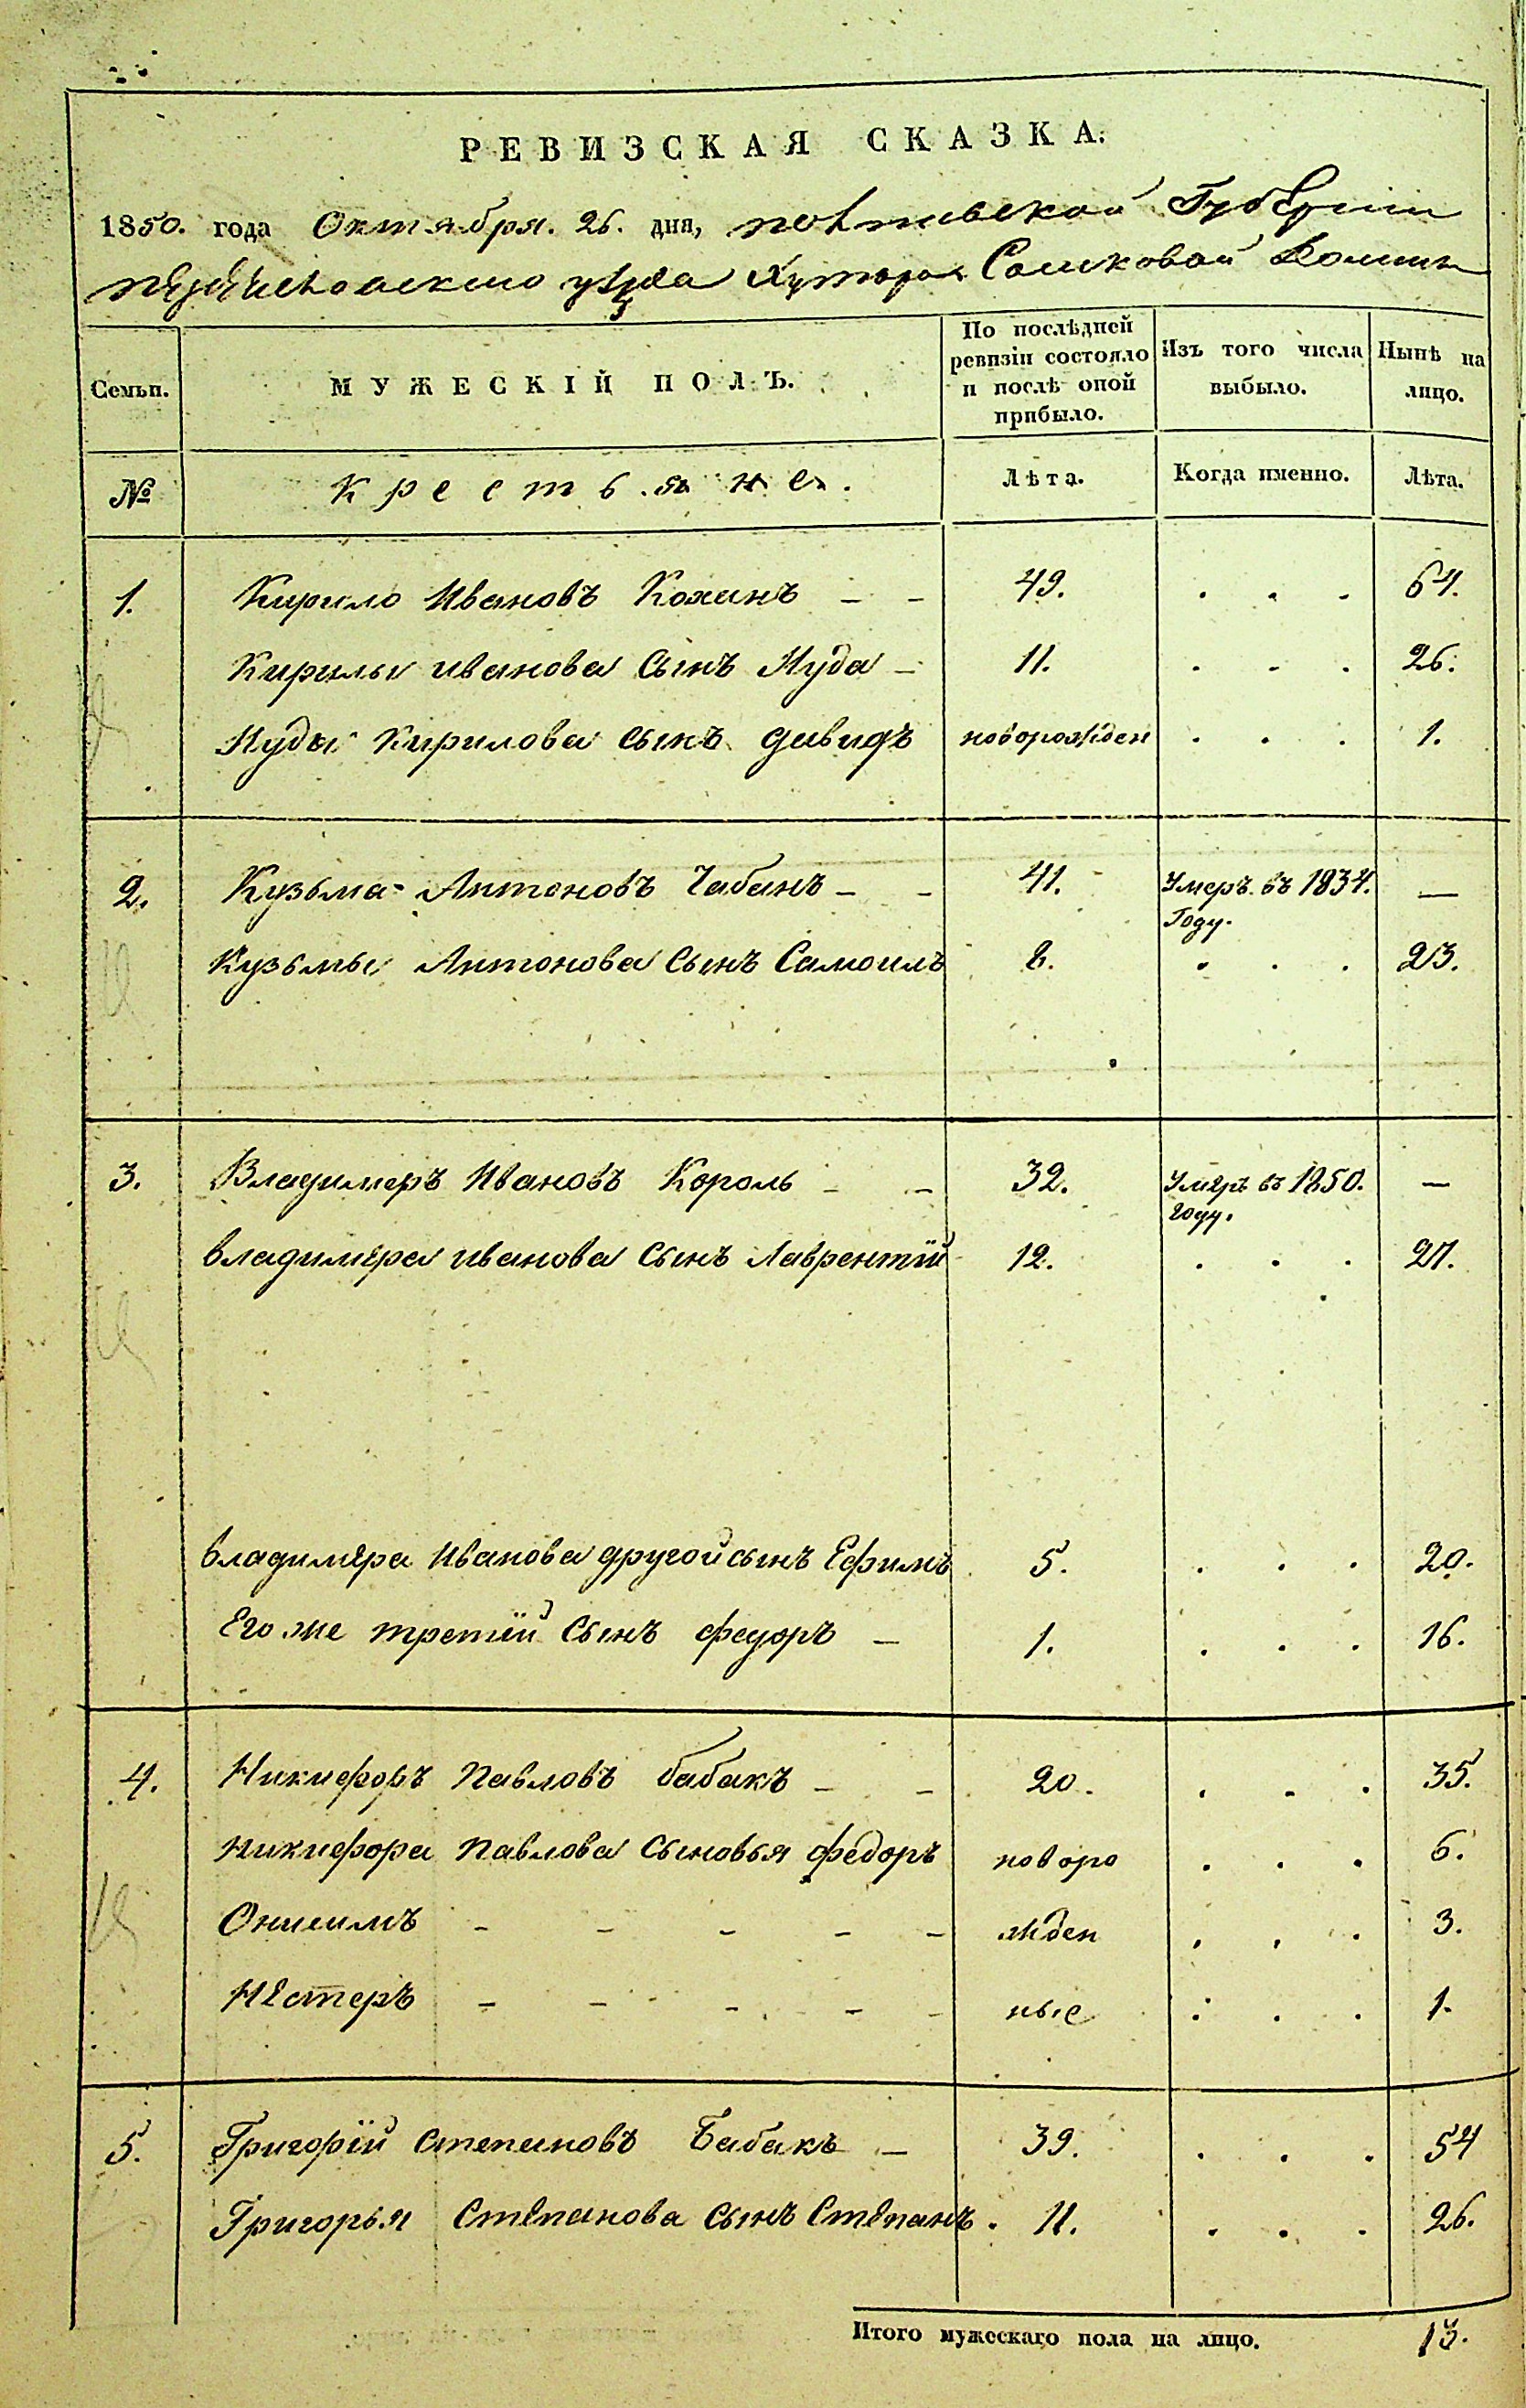 РЕВИЗСКАЯ СКАЗКА.
1850. года Октября. 26. дня, полтавской Губернии
уезда Хутора Сошковой Долины
Семьи. МУЖЕСКІЙ ПОЛЪ. По послѣдней ревизіи состояло и послѣ оной прибыло. Изъ того числа выбыло. Нынѣ на лицо.
№ Крестьяне. Лѣта. Когда именно. Лѣта.
1. Кирило Ивановъ Коханъ – – 49. . . . 64.
Кирилы иванова Сынъ Иуда – 11. . . . 26.
Иуды Кирилова сынъ давидъ новорожден . . . 1.
2. Кузьма Антоновъ Чабанъ – – 41. Умеръ въ 1834. Году. —
Кузьмы Антонова Сынъ Самоилъ 8. . . . 23.
3. Владимеръ Ивановъ Король – – 32. Умеръ въ 1850. году. —
владимера иванова Сынъ Лаврентий 12. . . . 27.
владимера Иванова другой сынъ Ефимъ 5. . . . 20.
Его же третий Сынъ федоръ – 1. . . . 16.
4. Никифоръ Павловъ бабакъ – – 20. . . . 35.
никифора Павлова Сыновья федоръ новоро . . . 6.
Онисимъ – – – – – жден . . . 3.
Нестеръ – – – – – ные . . . 1.
5. Григорий степановъ Бабакъ – 39. . . . 54
Григорья Степанова сынъ Степанъ. 11. . . . 26.
Итого мужескаго пола на лицо. 13.